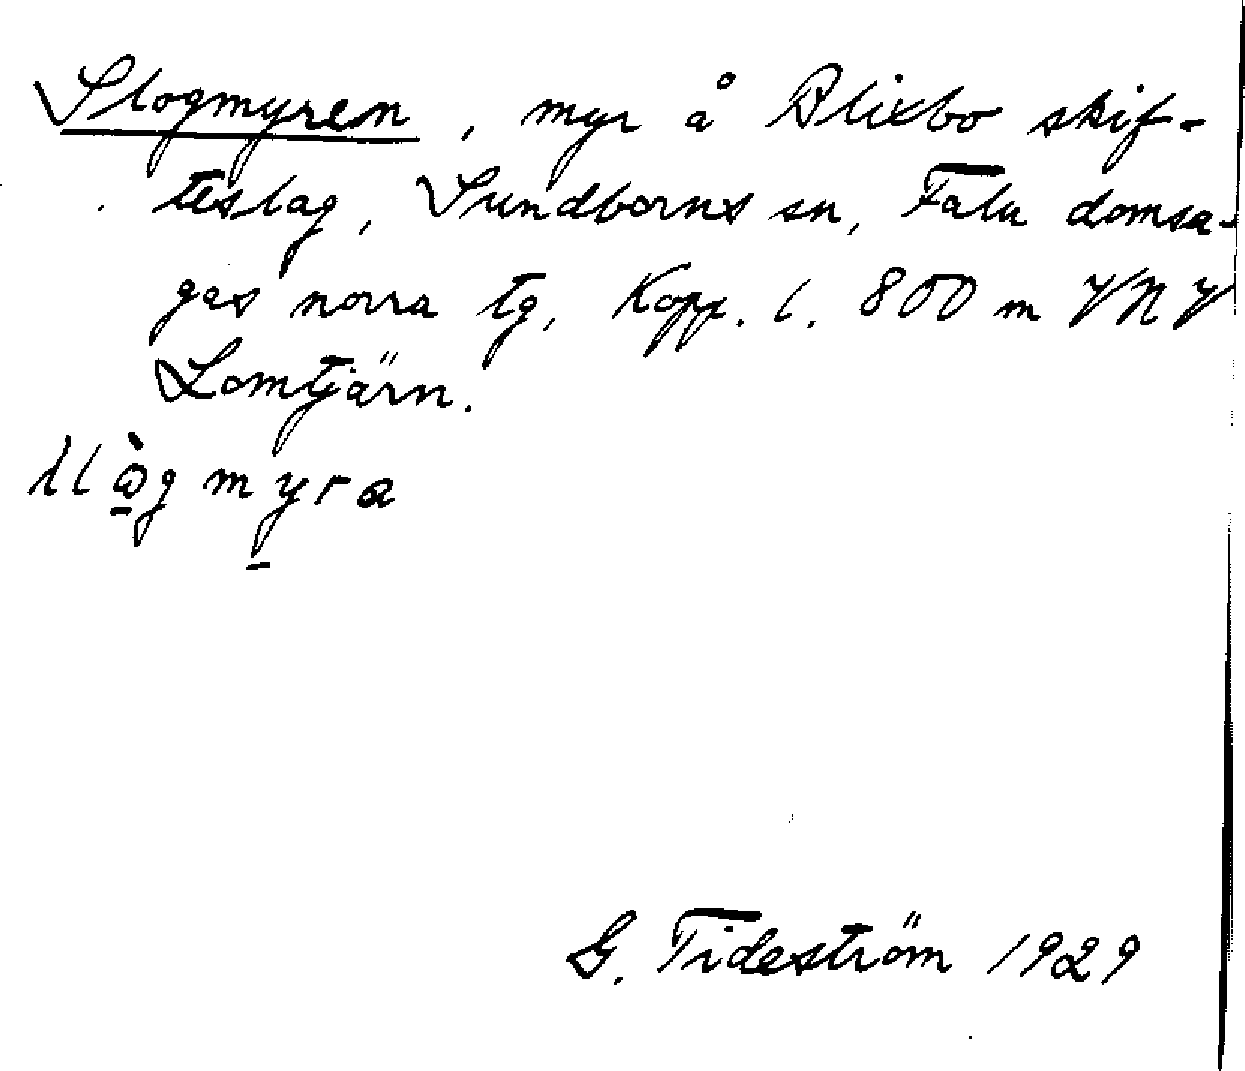 Slogmyren, myr å Blixbo skif-
teslag, Sundborns sn, Falu domsa-
gas norra tg, Kopp. l. 800 m VNV
Lomtjärn.
slò̱gmy̱ra
G. Tideström 1929